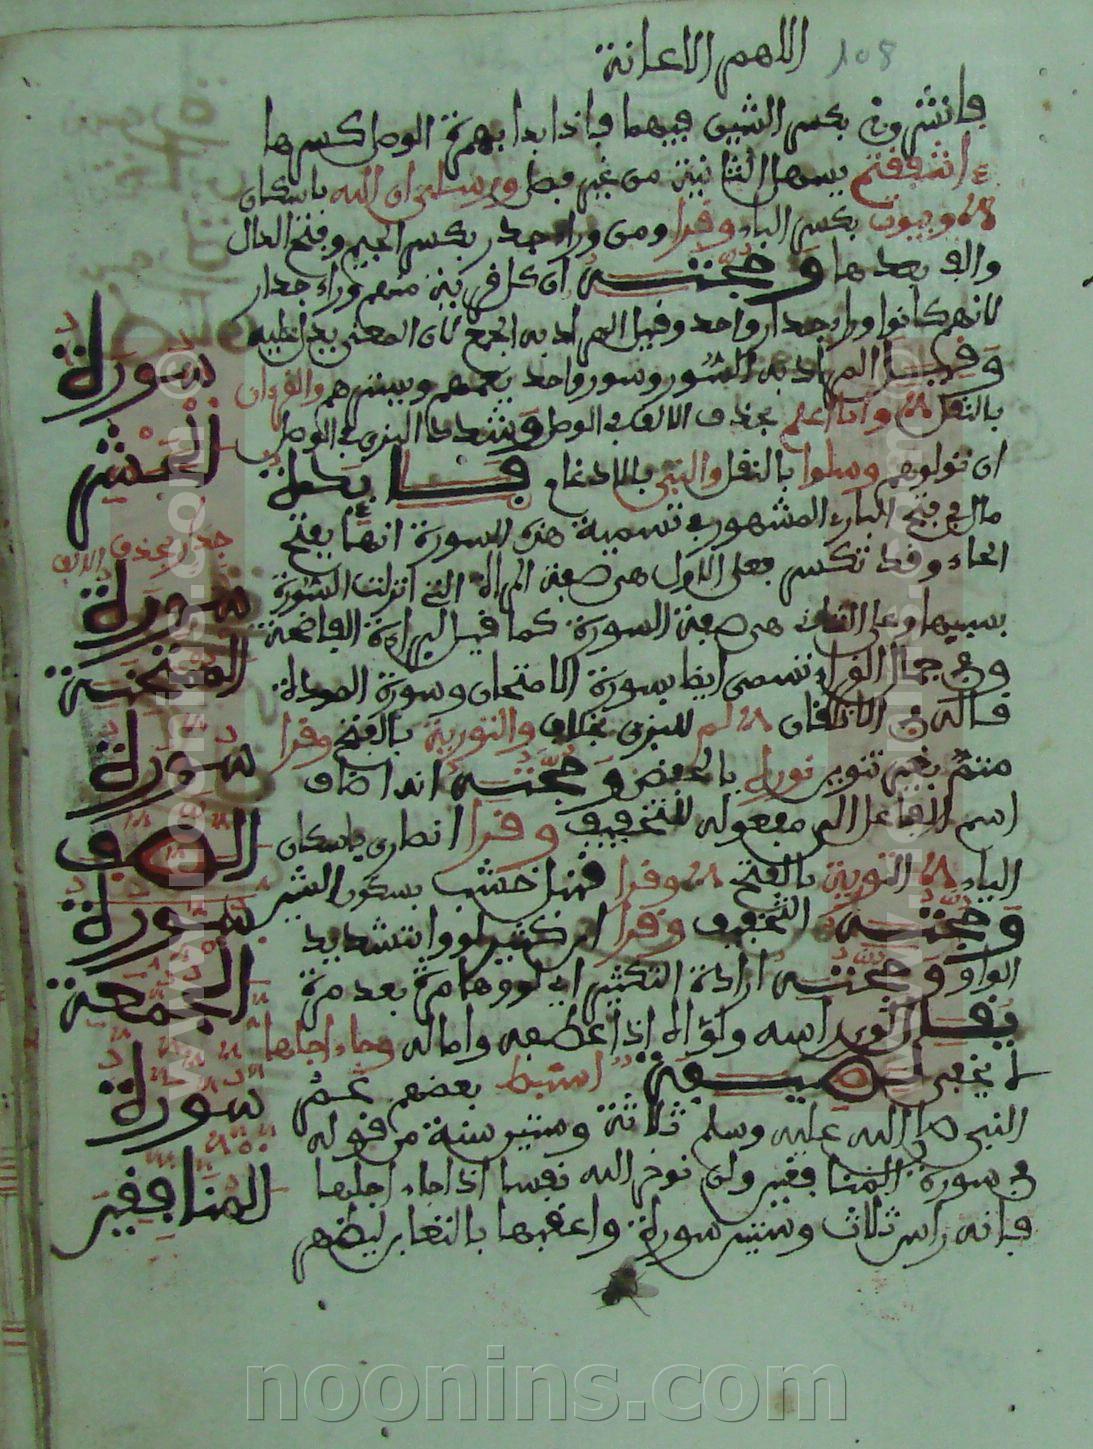 108 اللهم الاعانة
فانشزوا بكسر الشين فيهما فاذا بدا بهمزة الوصل كسرها
ءاشفقتم بتسهيل الثانية من غير فصل ورسلي ان الله باسكان
وبيوت بكسر الباء وقرا ومن وراء جدر بكسر الجيم وفتح الدال
والف بعدها وحجته ان كل فرقة منهم وراء جدار
لانهم كانوا وراء جدار واحد وقيل المراد به الجمع لان المعنى يدل عليه
وقيل المراد به السور وسور واحد يعمهم ويسترهم والقرءان
بالنقل وانا اعلم بحذف الالف في الوصل وشدد البزي في الوصل
ان تولوهم وسلوا بالنقل والنبي بالادغام فايدة
قال في فتح الباري المشهور في تسمية هذه السورة انها بفتح
الحاء وقد تكسر فعلى الاول هي صفة المراة التي انزلت السورة
بسببها وعلى الثاني هي صفة السورة كما قيل لبراءة الفاضحة
وفي جمال القراء تسمى ايضا سورة الامتحان وسورة المودة
قاله في الاتقان لم للبزي بخلاف والتورية بالفتح وقرا
متم بغير تنوين نوره بالخفض وحجته انه اضاف
اسم الفاعل الى مفعوله للتخفيف وقرا انصاري باسكان
الياء التورية بالفتح وقرا خشب بسكون الشين
وحجته التخفيف وقرا لووا بتشديد
الواو وحجته ارادة التكثير اي لووها مرة بعد مرة
يقال لوى راسه ولواه اذا عطفه واماله وجاء اجلها
لا يخفى لطيفة استنبط بعضهم عمر
النبي صلى الله عليه وسلم ثلاثة وستين سنة من قوله
في سورة المنافقين ولن يوخر الله نفسا اذا جاء اجلها
فانه راس ثلاث وستين سورة واعقبها بالتغابن ليظهر
سورة
الحشر
جدار بحذف الالف
سورة
الممتحنة
سورة
الصف
سورة
الجمعة
سورة
المنافقين
www.noonins.com ©
www.noonins.com ©
noonins.com